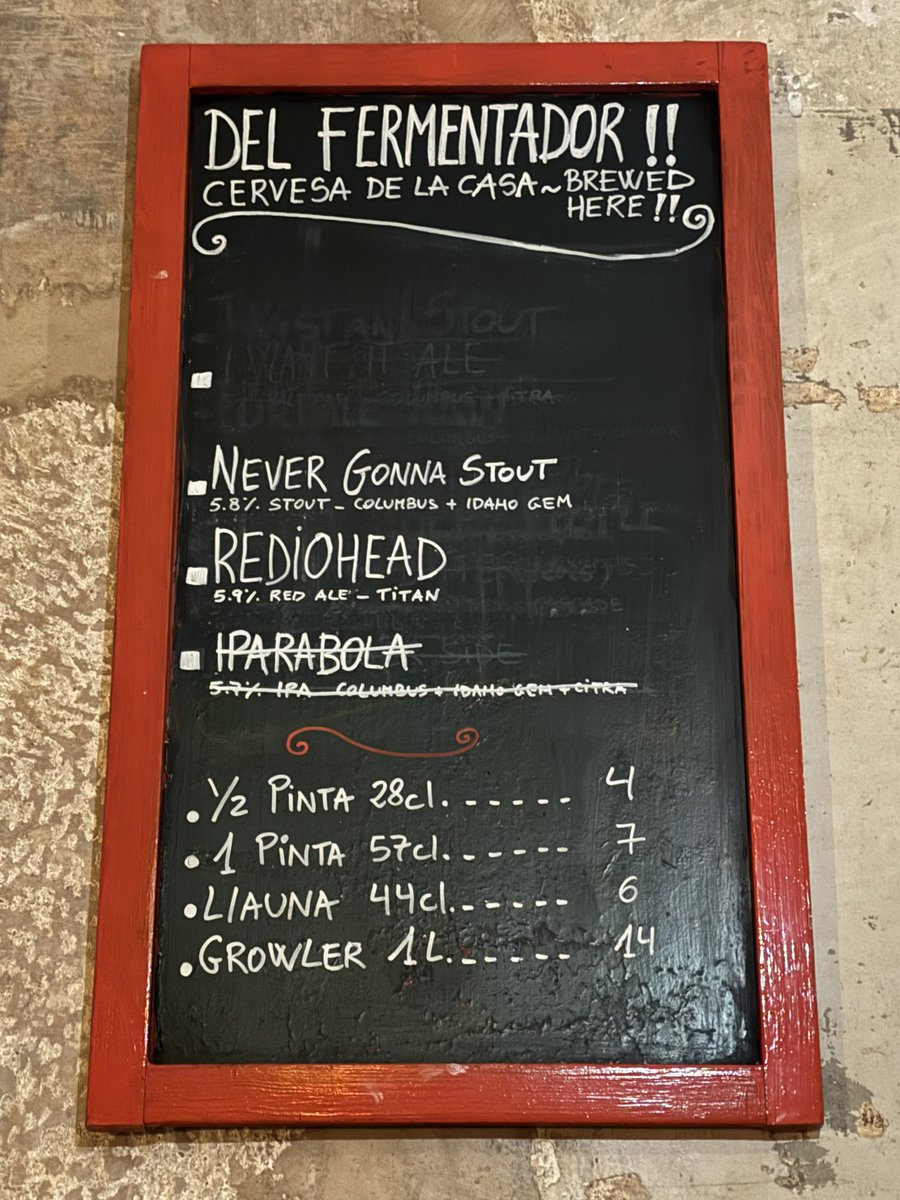 DEL FERMENTADOR !!
CERVESA DE LA CASA ~ BREWED
HERE !!
STOUT
ALE
COLUMBUS + CITRA
NEVER GONNA STOUT
5.8% STOUT - COLUMBUS + IDAHO GEM
REDIOHEAD
5.9% RED ALE - TITAN
IPARABOLA
SIDE
5.7% IPA COLUMBUS + IDAHO GEM + CITRA
. 1/2 PINTA 28cl. ------ 4
. 1 PINTA 57cl. ------ 7
. LLAUNA 44cl. ------ 6
. GROWLER 1L. ------ 14